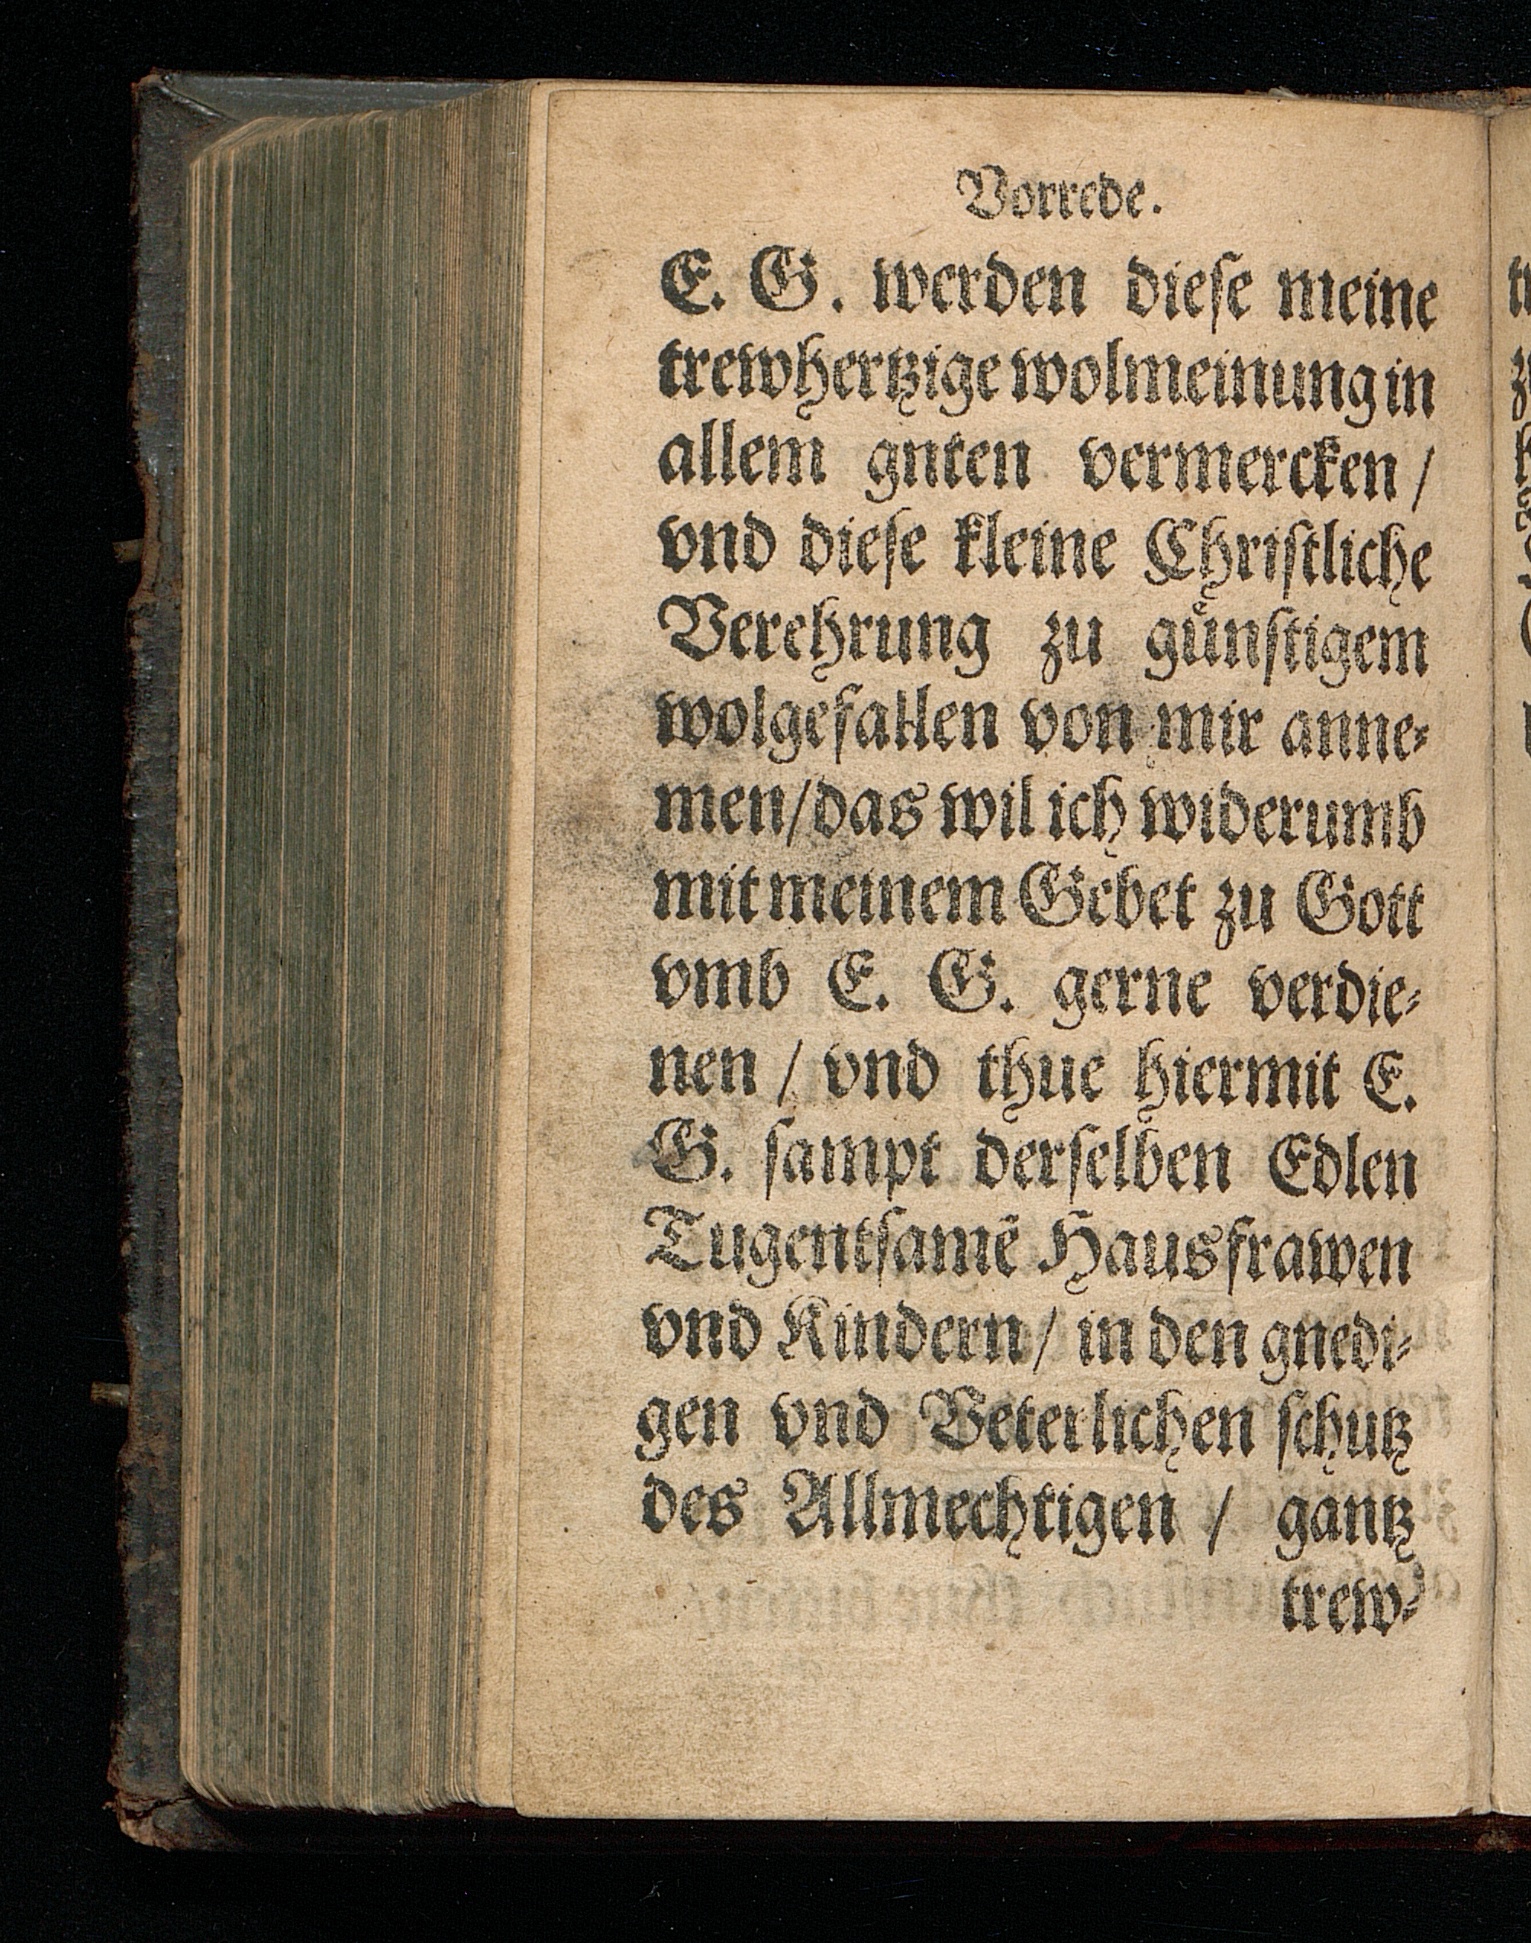 Vorrede.
E. G. werden dieſe meine
trewhertzige wolmeinung in
allem gnten vermercken /
vnd dieſe kleine Chriſtliche
Verehrung zu guͤnſtigem
wolgefallen von mir anne⸗
men/das wil ich widerumb
mit meinem Gebet zu Gott
vmb E. G. gerne verdie⸗
nen / vnd thue hiermit E.
G. ſampt derſelben Edlen
Tugentſamẽ Hausfrawen
vnd Kindern / in den gnedi⸗
gen vnd Veterlichen ſchutz
des Allmechtigen / gantz
trew⸗